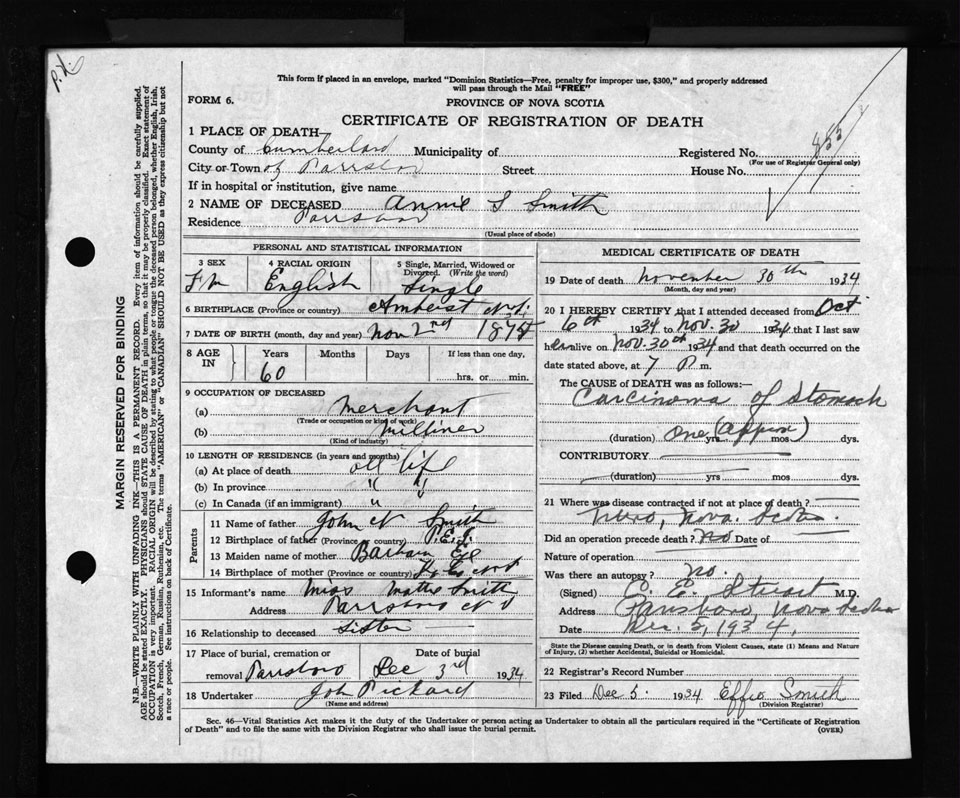 P.X.
This form if placed in an envelope, marked "Dominion Statistics—Free, penalty for improper use, $300," and properly addressed
will pass through the Mail "FREE"
FORM 6.
PROVINCE OF NOVA SCOTIA
CERTIFICATE OF REGISTRATION OF DEATH
1 PLACE OF DEATH—
County of Cumberland Municipality of Registered No. 
(For use of Registrar General only)
City or Town of Parrsboro Street House No.
If in hospital or institution, give name
2 NAME OF DECEASED Annie S Smith
Residence Parrsboro
(Usual place of abode)
MARGIN RESERVED FOR BINDING
N.B.—WRITE PLAINLY WITH UNFADING INK—THIS IS A PERMANENT RECORD. Every item of information should be carefully supplied.
AGE should be stated EXACTLY. PHYSICIANS should STATE CAUSE OF DEATH in plain terms, so that it may be properly classified. Exact statement of
OCCUPATION is very important. RACIAL ORIGIN will be described by stating to what people or tongue the deceased person belonged, whether English, Irish,
Scotch, French, German, Russian, Ruthenian, etc. The terms "AMERICAN" or "CANADIAN" SHOULD NOT BE USED as they express citizenship but not
a race or people. See instructions on back of Certificate.
PERSONAL AND STATISTICAL INFORMATION
3 SEX
Fm
4 RACIAL ORIGIN
English
5 Single, Married, Widowed or
Divorced. (Write the word)
Single
6 BIRTHPLACE (Province or country) Amherst N.S.
7 DATE OF BIRTH (month, day and year) Nov 2nd 1874
8 AGE IN
Years
60
Months
Days
If less than one day,
hrs. or min.
9 OCCUPATION OF DECEASED
(a) Merchant
(Trade or occupation or kind of work)
(b) Milliner
(Kind of industry)
10 LENGTH OF RESIDENCE (in years and months)
(a) At place of death all life
(b) In province " "
(c) In Canada (if an immigrant) "
Parents
11 Name of father John N Smith
12 Birthplace of father (Province or country) P.E.I.
13 Maiden name of mother Barbara
14 Birthplace of mother (Province or country)
15 Informant's name Miss Mattie Smith
Address Parrsboro N S
16 Relationship to deceased Sister
17 Place of burial, cremation or
removal Parrsboro
Date of burial
Dec 3rd 1934
18 Undertaker Joh Pickard
(Name and address)
MEDICAL CERTIFICATE OF DEATH
19 Date of death November 30th 1934
(Month, day and year)
20 I HEREBY CERTIFY that I attended deceased from Oct
6th 1934 to Nov. 30 1934 that I last saw
her alive on Nov. 30th 1934 and that death occurred on the
date stated above, at 7 P m.
The CAUSE OF DEATH was as follows:—
Carcinoma of Stomach
(duration) one yrs. (Approx) mos. dys.
CONTRIBUTORY
(duration) yrs. mos. dys.
21 Where was disease contracted if not at place of death?
Truro, Nova Scotia
Did an operation precede death? No Date of
Nature of operation
Was there an autopsy? No.
(Signed) C. E. Stuart M.D.
Address Parrsboro, Nova Scotia
Date Dec. 5, 1934,
State the Disease causing Death, or in death from Violent Causes, state (1) Means and Nature
of Injury, (2) whether Accidental, Suicidal or Homicidal.
22 Registrar's Record Number
23 Filed Dec 5. 1934 Effie Smith
(Division Registrar)
Sec. 46—Vital Statistics Act makes it the duty of the Undertaker or person acting as Undertaker to obtain all the particulars required in the "Certificate of Registration
of Death" and to file the same with the Division Registrar who shall issue the burial permit.
(OVER)